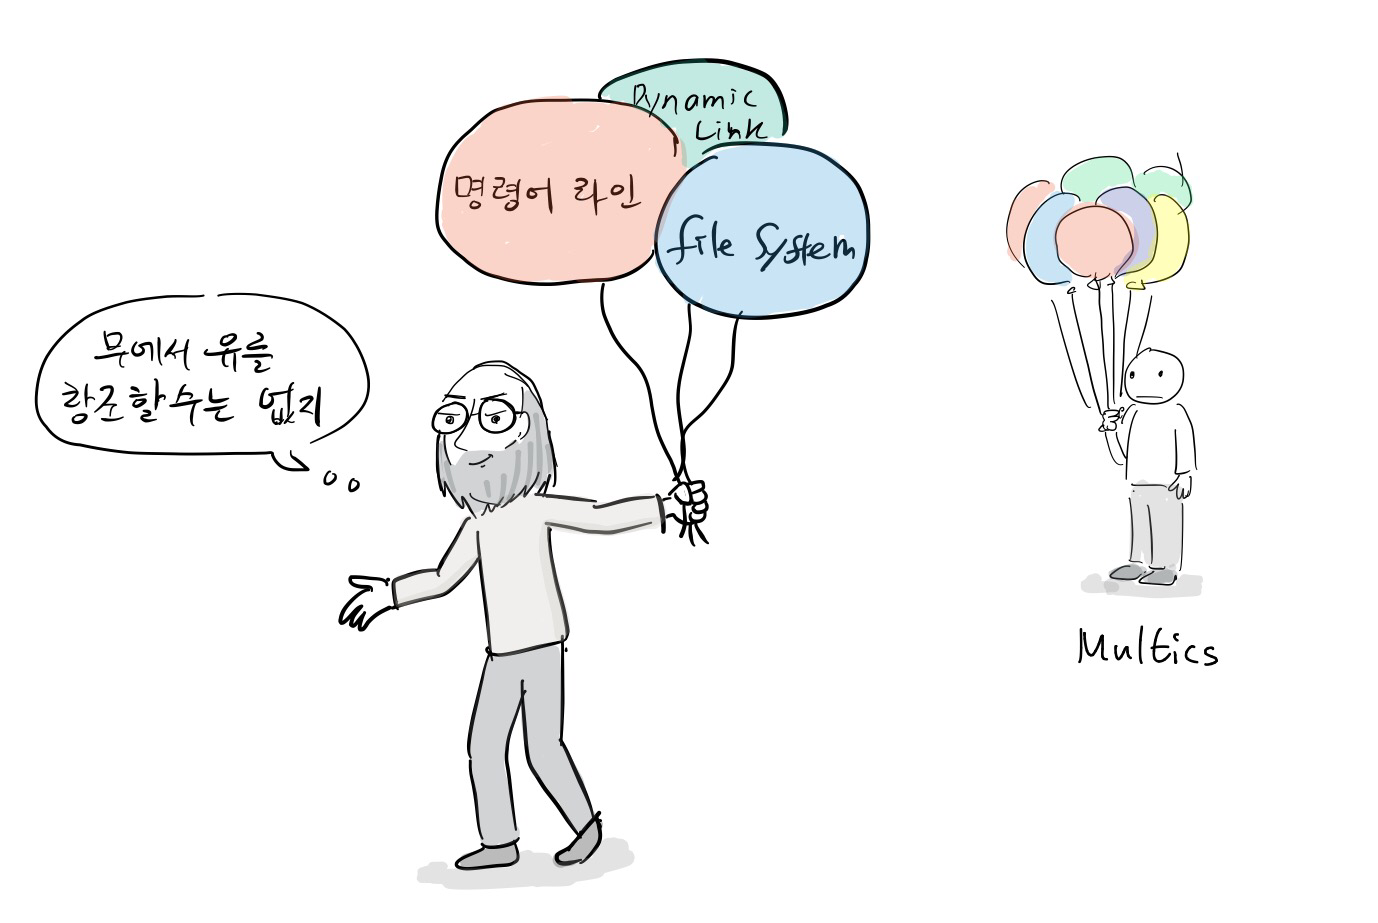 Dynamic
Link
명령어 라인
file System
무에서 유를
창조할수는 없지
Multics